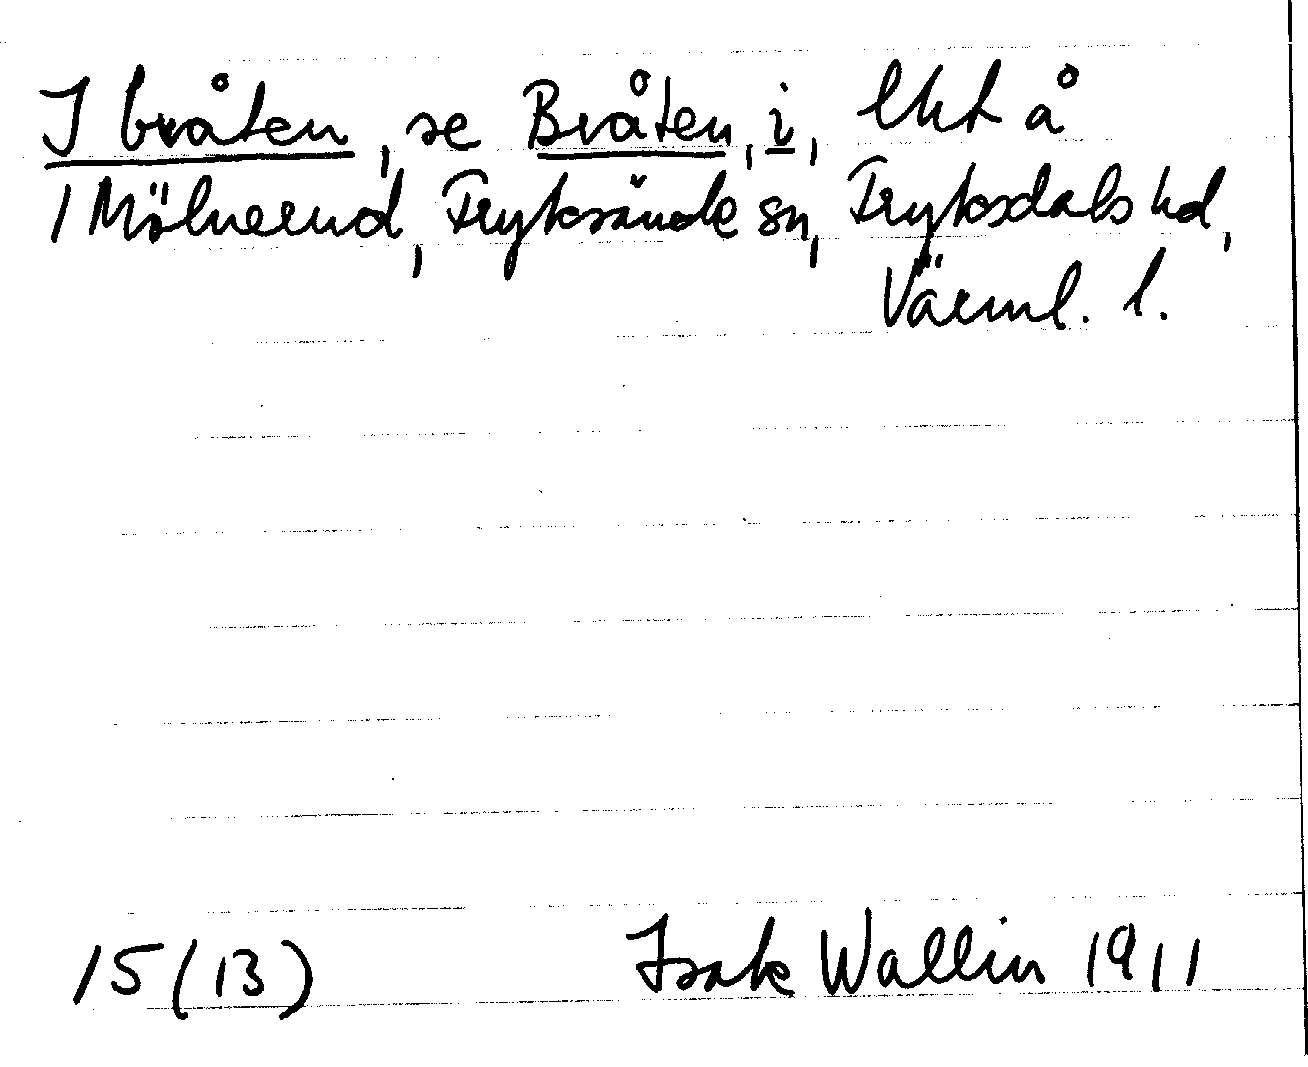 I bråten, se Bråten, i, lht å
1 Mölnerud, Fryksände sn, Fryksdals hd,
Värml. l.
15 (13) Isak Wallin 1911